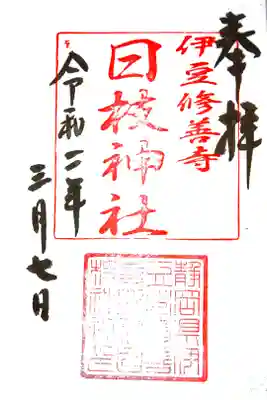 奉拝
伊豆修善寺
日枝神社
令和二年
三月七日